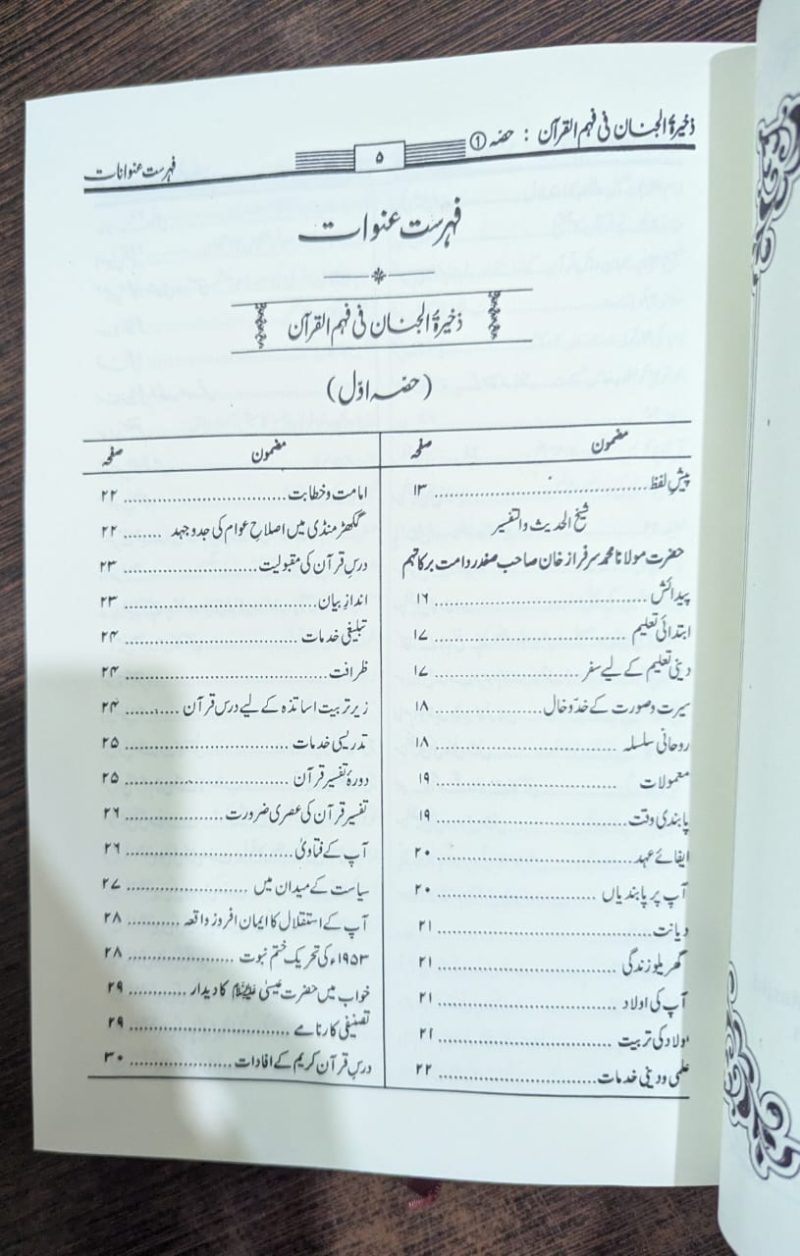 ذخیرۃ الجنان فی فہم القرآن : حصہ ①
۵
فہرست عنوانات
فہرست عنوات
ذخیرۃ الجنان فی فہم القرآن
(حصہ اوّل)
مضمون صفحہ
پیش لفظ ........ ۱۳
شیخ الحدیث والتفسیر
حضرت مولانا محمد سرفراز خان صاحب صفدر دامت برکاتہم
پیدائش ........ ۱۶
ابتدائی تعلیم ........ ۱۷
دینی تعلیم کے لیے سفر ........ ۱۷
سیرت و صورت کے خدوخال ........ ۱۸
روحانی سلسلہ ........ ۱۸
معمولات ........ ۱۹
پابندی وقت ........ ۱۹
ایفائے عہد ........ ۲۰
آپ پر پابندیاں ........ ۲۰
دیانت ........ ۲۱
گھریلو زندگی ........ ۲۱
آپ کی اولاد ........ ۲۱
اولاد کی تربیت ........ ۲۱
علمی و دینی خدمات ........ ۲۲
مضمون صفحہ
امامت و خطابت ........ ۲۲
گکھڑ منڈی میں اصلاحِ عوام کی جدوجہد ........ ۲۲
درسِ قرآن کی مقبولیت ........ ۲۳
اندازِ بیان ........ ۲۳
تبلیغی خدمات ........ ۲۴
ظرافت ........ ۲۴
زیر تربیت اساتذہ کے لیے درس قرآن ........ ۲۴
تدریسی خدمات ........ ۲۵
دورۂ تفسیر قرآن ........ ۲۵
تفسیر قرآن کی عصری ضرورت ........ ۲۶
آپ کے فتاویٰ ........ ۲۶
سیاست کے میدان میں ........ ۲۷
آپ کے استقلال کا ایمان افروز واقعہ ........ ۲۸
۱۹۵۳ء کی تحریک ختم نبوت ........ ۲۸
خواب میں حضرت عیسیٰ علیہ السلام کا دیدار ........ ۲۹
تصنیفی کارنامے ........ ۲۹
درسِ قرآن کریم کے افادات ........ ۳۰